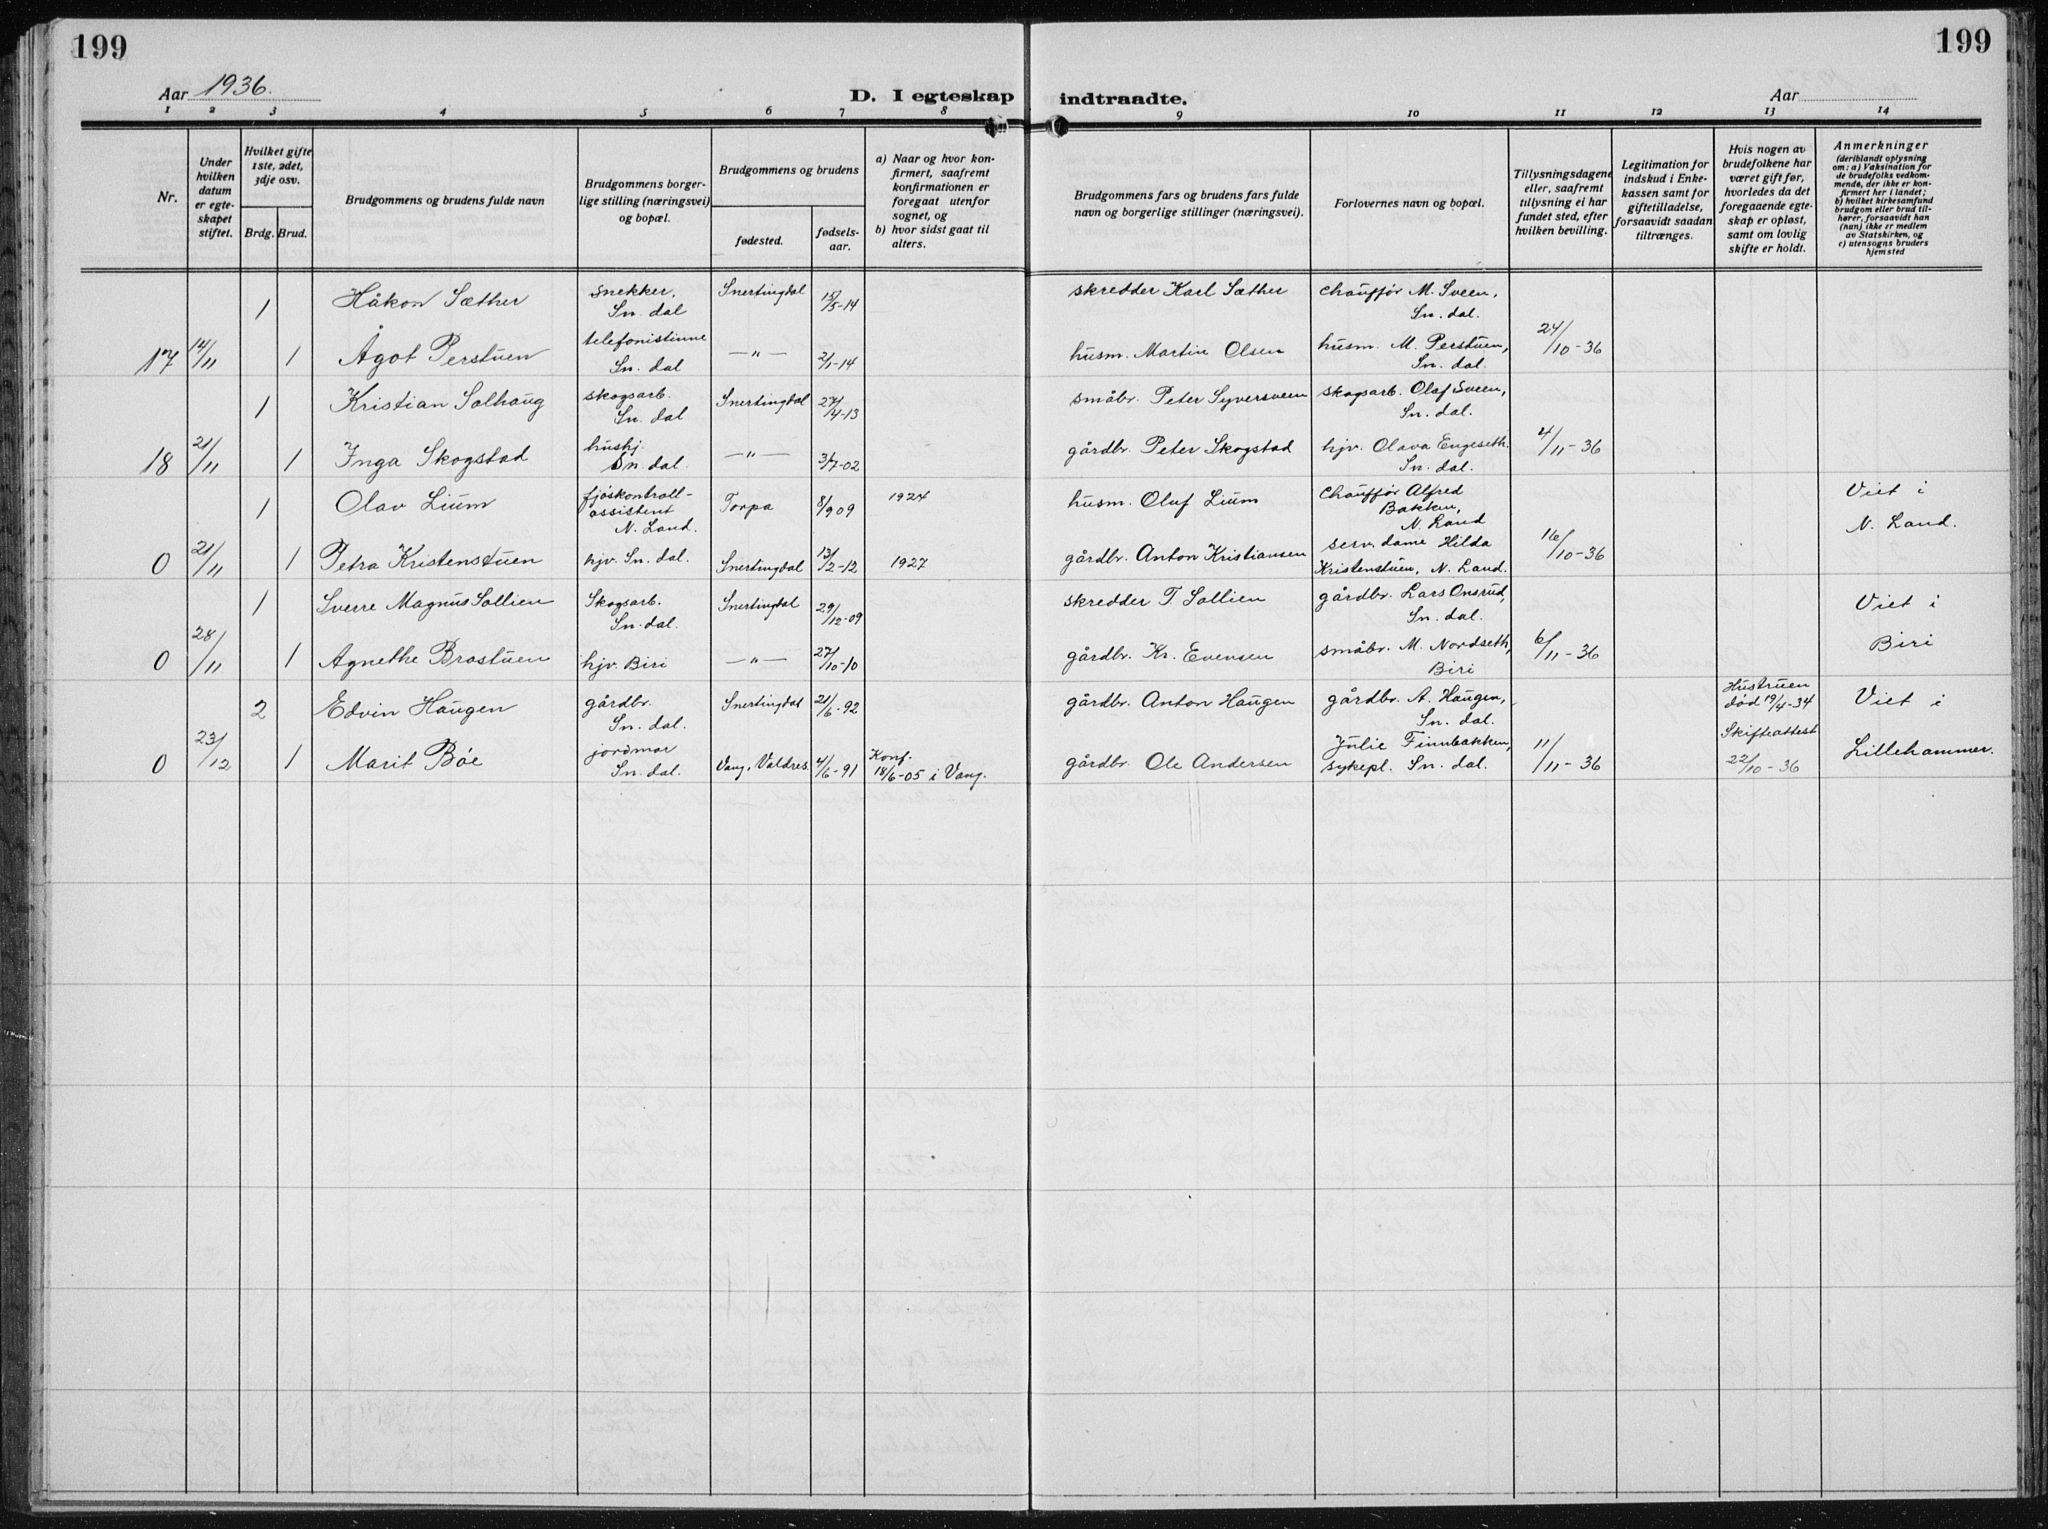 199
199
Aar 1936.
D. I egteskap indtraadte.
Aar
1 2 3 4 5 6 7 8 9 10 11 12 13 14
Nr.
Under hvilken datum er egteskapet stiftet.
Hvilket gifte 1ste, 2det, 3dje osv.
Brdg. Brud.
Brudgommens og brudens fulde navn
Brudgommens borgerlige stilling (næringsvei) og bopæl.
Brudgommens og brudens
fødested.
fødselsaar.
a) Naar og hvor konfirmert, saafremt konfirmationen er foregaat utenfor sognet, og
b) hvor sidst gaat til alters.
Brudgommens fars og brudens fars fulde navn og borgerlige stillinger (næringsvei).
Forlovernes navn og bopæl.
Tillysningsdagene eller, saafremt tillysning ei har fundet sted, efter hvilken bevilling.
Legitimation for indskud i Enkekassen samt for giftetilladelse, forsaavidt saadan tiltrænges.
Hvis nogen av brudefolkene har været gift før, hvorledes da det foregaaende egteskap er opløst, samt om lovlig skifte er holdt.
Anmerkninger
(deriblandt oplysning om: a) Vaksination for de brudefolks vedkommende, der ikke er konfirmert her i landet; b) hvilket kirkesamfund brudgom eller brud tilhører, forsaavidt han (hun) ikke er medlem av Statskirken, og c) utensogns bruders hjemsted
1 Håkon Sæther snekker, Sn. dal Snertingdal 15/5-14 skredder Karl Sæther chauffør M. Sveen, Sn. dal.
17 14/11 1 Ågot Perstuen telefonistinne Sn. dal —"— 2/1-14 husm. Martin Olsen husm. M. Perstuen, Sn. dal. 24/10-36
1 Kristian Solhaug skogsarb. Sn. dal Snertingdal 27/4-13 småbr. Peter Syversveen skogsarb. Olaf Sveen, Sn. dal.
18 21/11 1 Inga Skogstad hushj. Sn. dal. —"— 3/7-02 gårdbr. Peter Skogstad hjv. Olava Engeseth. Sn. dal. 4/11-36
1 Olav Lium fjøskontroll-assistent N. Land. Torpa 8/9 09 1924 husm. Oluf Lium Chauffør Alfred Bakken, N. Land Viet i N. Land.
0 21/11 1 Petra Kristenstuen hjv. Sn. dal. Snertingdal 13/2-12 1927 gårdbr. Anton Kristiansen serv. dame Hilda Kristenstuen, N. Land. 16/10-36
1 Sverre Magnus Sollien Skogsarb. Sn. dal. Snertingdal 29/12-09 skredder T. Sollien gårdbr. Lars Onsrud, Sn. dal. Viet i Biri
0 28/11 1 Agnethe Brostuen hjv. Biri —"— 27/10-10 gårdbr. Kr. Evensen småbr. M. Nordseth, Biri 6/11-36
2 Edvin Haugen gårdbr. Sn. dal. Snertingdal 21/6-92 gårdbr. Anton Haugen gårdbr. A. Haugen, Sn. dal. Hustruen død 19/4-34 Skifteattest 22/10-36 Viet i Lillehammer.
0 23/12 1 Marit Bøe jordmor Sn. dal. Vang, Valdres. 4/6-91 Konf. 18/6-05 i Vang. gårdbr. Ole Andersen Julie Finnbakken, sykepl. Sn. dal. 11/11-36